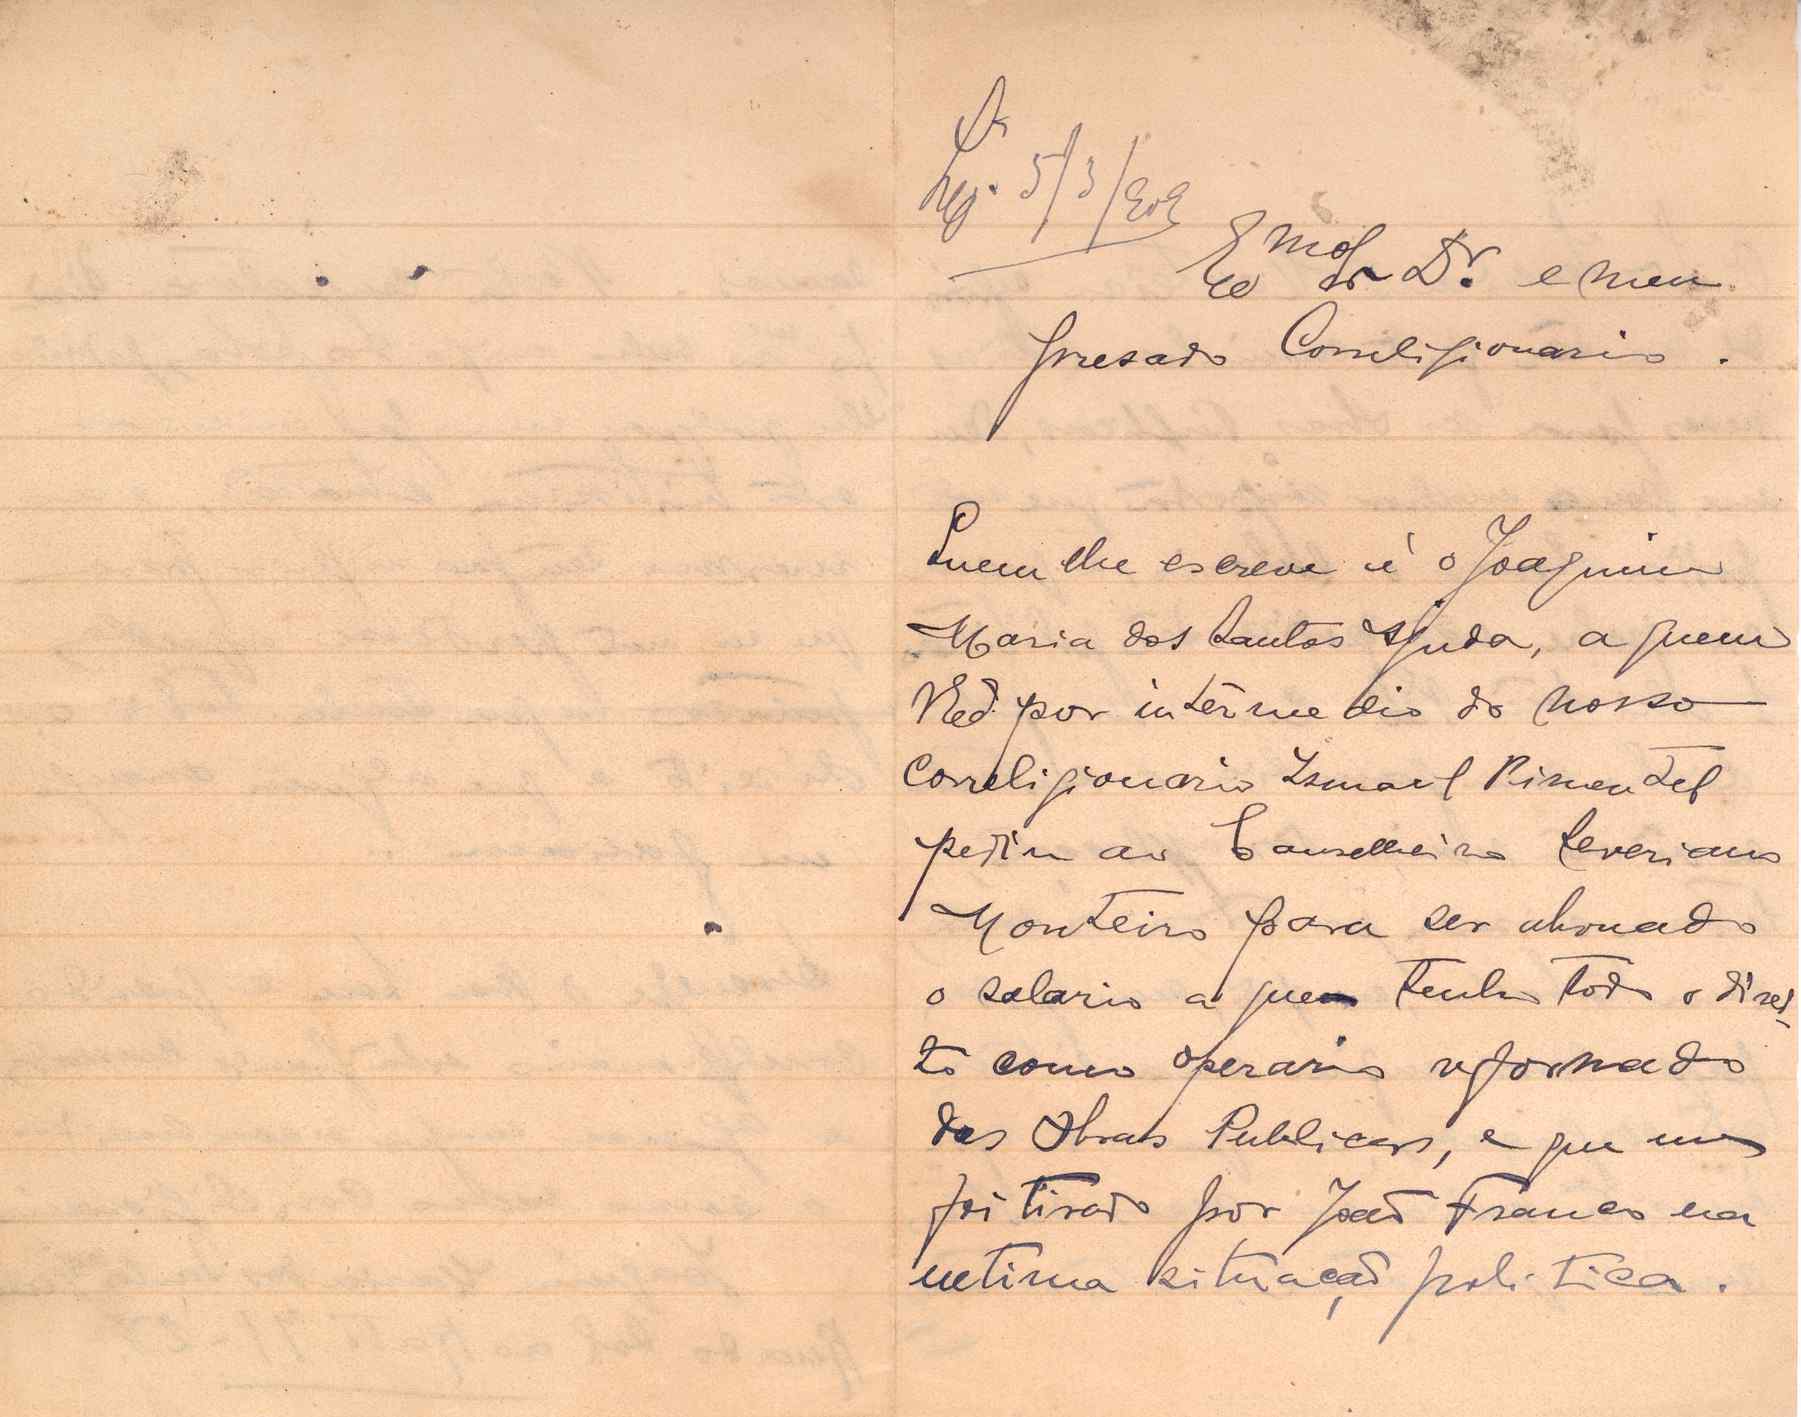 5/3/909
Exmo Sr Dr. e meu
presado Correligionario.
Quem lhe escreve é o Joaquim
Maria dos Santos Ajuda, a quem
VExª. por intérmedio do nosso
Correligionario Ismael Pimentel
pediu ao Conselheiro Severiano
Monteiro para ser abonado
o salario a que tenho todo o direi-
to como operario reformado
das Obras Publicas, e que me
foi tirado por João Franco na
ultima situação politica.